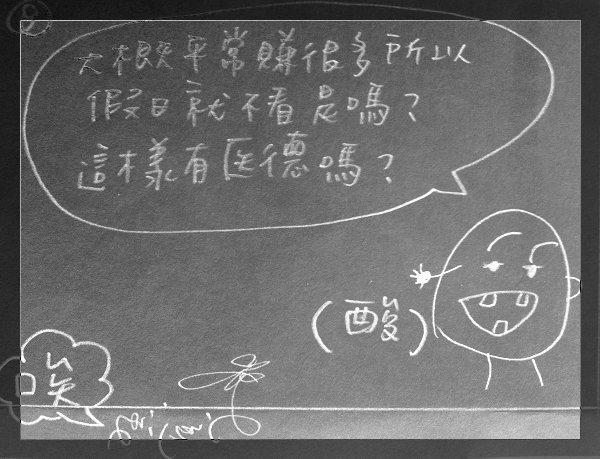 大概平常賺很多所以
假日就不看是嗎？
這樣有医德嗎？
(酸)
唉